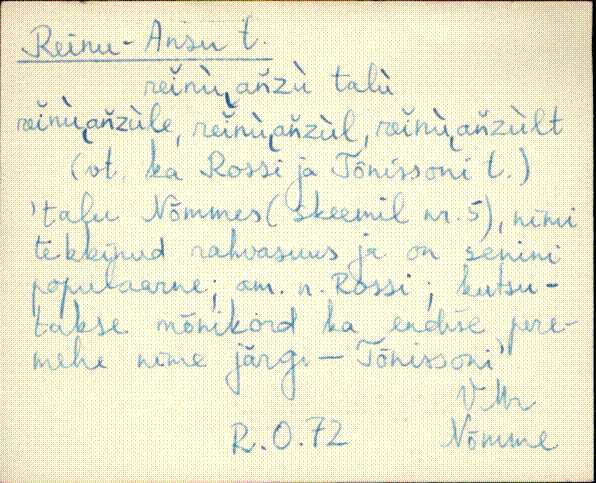 Reinu-Ansu t.
rei̮nù‿ańzù talù
rei̮nù‿ańzùle, rei̮nù‿ańzùl, rei̮nù‿ańzùlt
(vt. ka Rossi ja Tõnissoni t.)
'talu Nõmmes (skeemil nr. 5), nimi
tekkinud rahvasuus ja on senini
populaarne; am. n. Rossi; kutsu-
takse mõnikord ka endise pere-
mehe nime järgi — Tõnissoni'
V.Mr
R.O.72 Nõmme